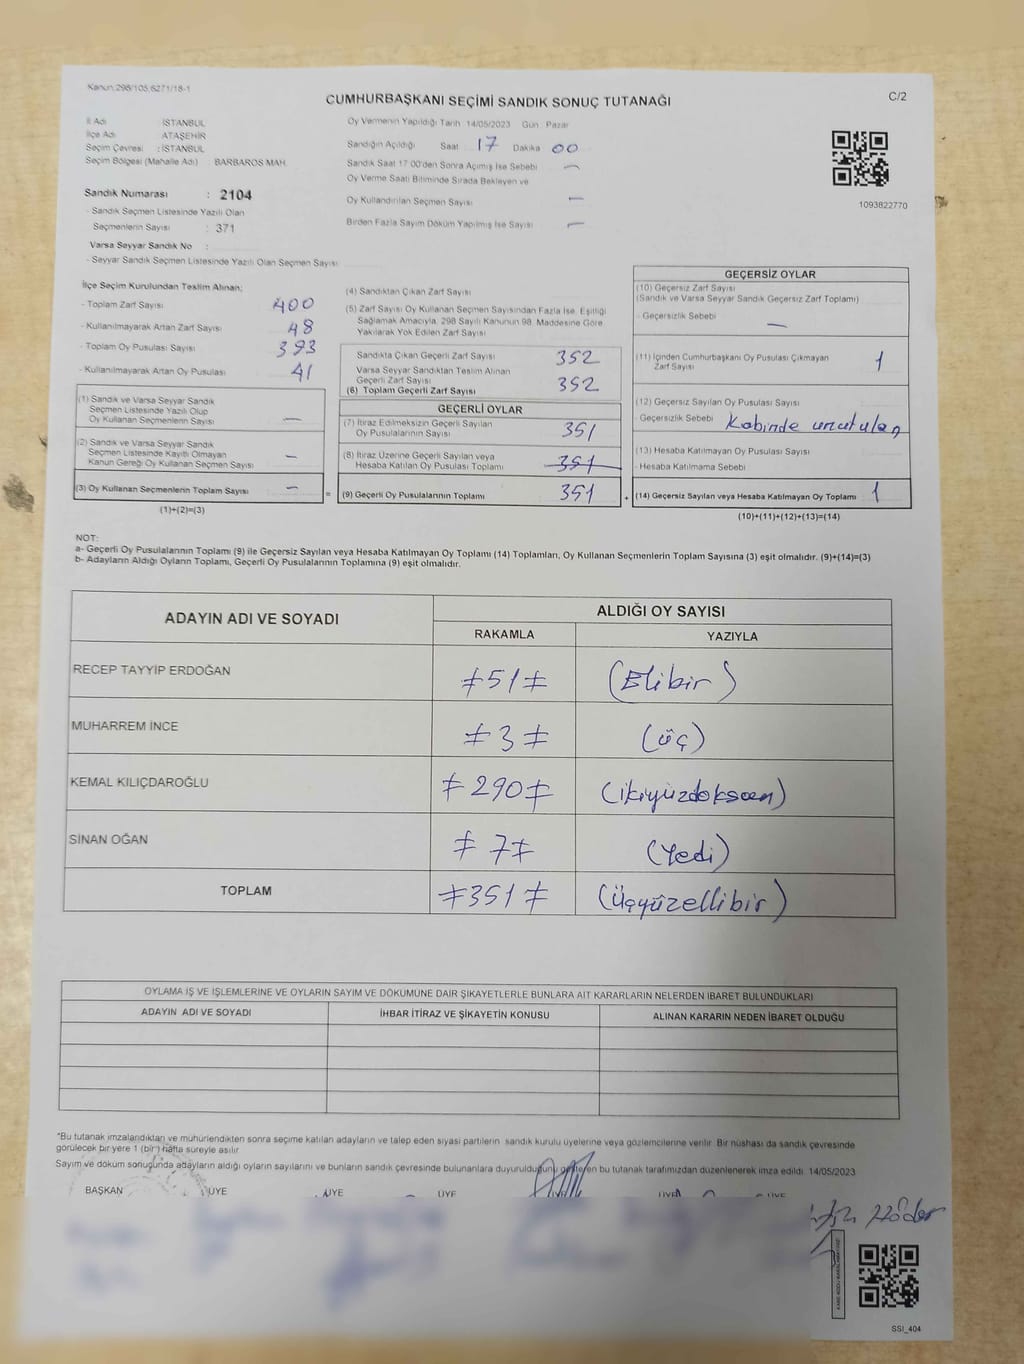 Kanun:298/105,6271/18-1
CUMHURBAŞKANI SEÇİMİ SANDIK SONUÇ TUTANAĞI
C/2
İl Adı : İSTANBUL
İlçe Adı : ATAŞEHİR
Seçim Çevresi : İSTANBUL
Seçim Bölgesi (Mahalle Adı) BARBAROS MAH.
Oy Vermenin Yapıldığı Tarih 14/05/2023 Gün : Pazar
Sandığın Açıldığı Saat 17 Dakika 00
Sandık Saat 17:00'den Sonra Açılmış İse Sebebi —
Oy Verme Saati Bitiminde Sırada Bekleyen ve
Oy Kullandırılan Seçmen Sayısı —
Birden Fazla Sayım Döküm Yapılmış İse Sayısı —
1093822770
Sandık Numarası : 2104
- Sandık Seçmen Listesinde Yazılı Olan
Seçmenlerin Sayısı : 371
Varsa Seyyar Sandık No :
- Seyyar Sandık Seçmen Listesinde Yazılı Olan Seçmen Sayısı
İlçe Seçim Kurulundan Teslim Alınan;
- Toplam Zarf Sayısı 400
- Kullanılmayarak Artan Zarf Sayısı 48
- Toplam Oy Pusulası Sayısı 393
- Kullanılmayarak Artan Oy Pusulası 41
(1) Sandık ve Varsa Seyyar Sandık
Seçmen Listesinde Yazılı Olup
Oy Kullanan Seçmenlerin Sayısı —
(2) Sandık ve Varsa Seyyar Sandık
Seçmen Listesinde Kayıtlı Olmayan
Kanun Gereği Oy Kullanan Seçmen Sayısı —
(3) Oy Kullanan Seçmenlerin Toplam Sayısı —
(1)+(2)=(3)
(4) Sandıktan Çıkan Zarf Sayısı
(5) Zarf Sayısı Oy Kullanan Seçmen Sayısından Fazla İse, Eşitliği
Sağlamak Amacıyla, 298 Sayılı Kanunun 98. Maddesine Göre
Yakılarak Yok Edilen Zarf Sayısı
Sandıkta Çıkan Geçerli Zarf Sayısı 352
Varsa Seyyar Sandıktan Teslim Alınan
Geçerli Zarf Sayısı
(6) Toplam Geçerli Zarf Sayısı 352
GEÇERLİ OYLAR
(7) İtiraz Edilmeksizin Geçerli Sayılan
Oy Pusulalarının Sayısı 351
(8) İtiraz Üzerine Geçerli Sayılan veya
Hesaba Katılan Oy Pusulası Toplamı 351
= (9) Geçerli Oy Pusulalarının Toplamı 351 +
GEÇERSİZ OYLAR
(10) Geçersiz Zarf Sayısı
(Sandık ve Varsa Seyyar Sandık Geçersiz Zarf Toplamı)
- Geçersizlik Sebebi —
(11) İçinden Cumhurbaşkanı Oy Pusulası Çıkmayan
Zarf Sayısı 1
(12) Geçersiz Sayılan Oy Pusulası Sayısı
- Geçersizlik Sebebi Kabinde unutulan
(13) Hesaba Katılmayan Oy Pusulası Sayısı
- Hesaba Katılmama Sebebi
(14) Geçersiz Sayılan veya Hesaba Katılmayan Oy Toplamı 1
(10)+(11)+(12)+(13)=(14)
NOT:
a- Geçerli Oy Pusulalarının Toplamı (9) ile Geçersiz Sayılan veya Hesaba Katılmayan Oy Toplamı (14) Toplamları, Oy Kullanan Seçmenlerin Toplam Sayısına (3) eşit olmalıdır. (9)+(14)=(3)
b- Adayların Aldığı Oyların Toplamı, Geçerli Oy Pusulalarının Toplamına (9) eşit olmalıdır.
ADAYIN ADI VE SOYADI
ALDIĞI OY SAYISI
RAKAMLA YAZIYLA
RECEP TAYYİP ERDOĞAN ≠51≠ (Elibir)
MUHARREM İNCE ≠3≠ (üç)
KEMAL KILIÇDAROĞLU ≠290≠ (ikiyüzdoksan)
SİNAN OĞAN ≠7≠ (Yedi)
TOPLAM ≠351≠ (Üçyüzellibir)
OYLAMA İŞ VE İŞLEMLERİNE VE OYLARIN SAYIM VE DÖKÜMÜNE DAİR ŞİKAYETLERLE BUNLARA AİT KARARLARIN NELERDEN İBARET BULUNDUKLARI
ADAYIN ADI VE SOYADI İHBAR İTİRAZ VE ŞİKAYETİN KONUSU ALINAN KARARIN NEDEN İBARET OLDUĞU
*Bu tutanak imzalandıktan ve mühürlendikten sonra seçime katılan adayların ve talep eden siyasi partilerin sandık kurulu üyelerine veya gözlemcilerine verilir. Bir nüshası da sandık çevresinde
görülecek bir yere 1 (bir) hafta süreyle asılır.
Sayım ve döküm sonucunda adayların aldığı oyların sayılarını ve bunların sandık çevresinde bulunanlara duyurulduğunu gösteren bu tutanak tarafımızdan düzenlenerek imza edildi. 14/05/2023
BAŞKAN ÜYE ÜYE ÜYE ÜYE ÜYE ÜYE
SSI_404